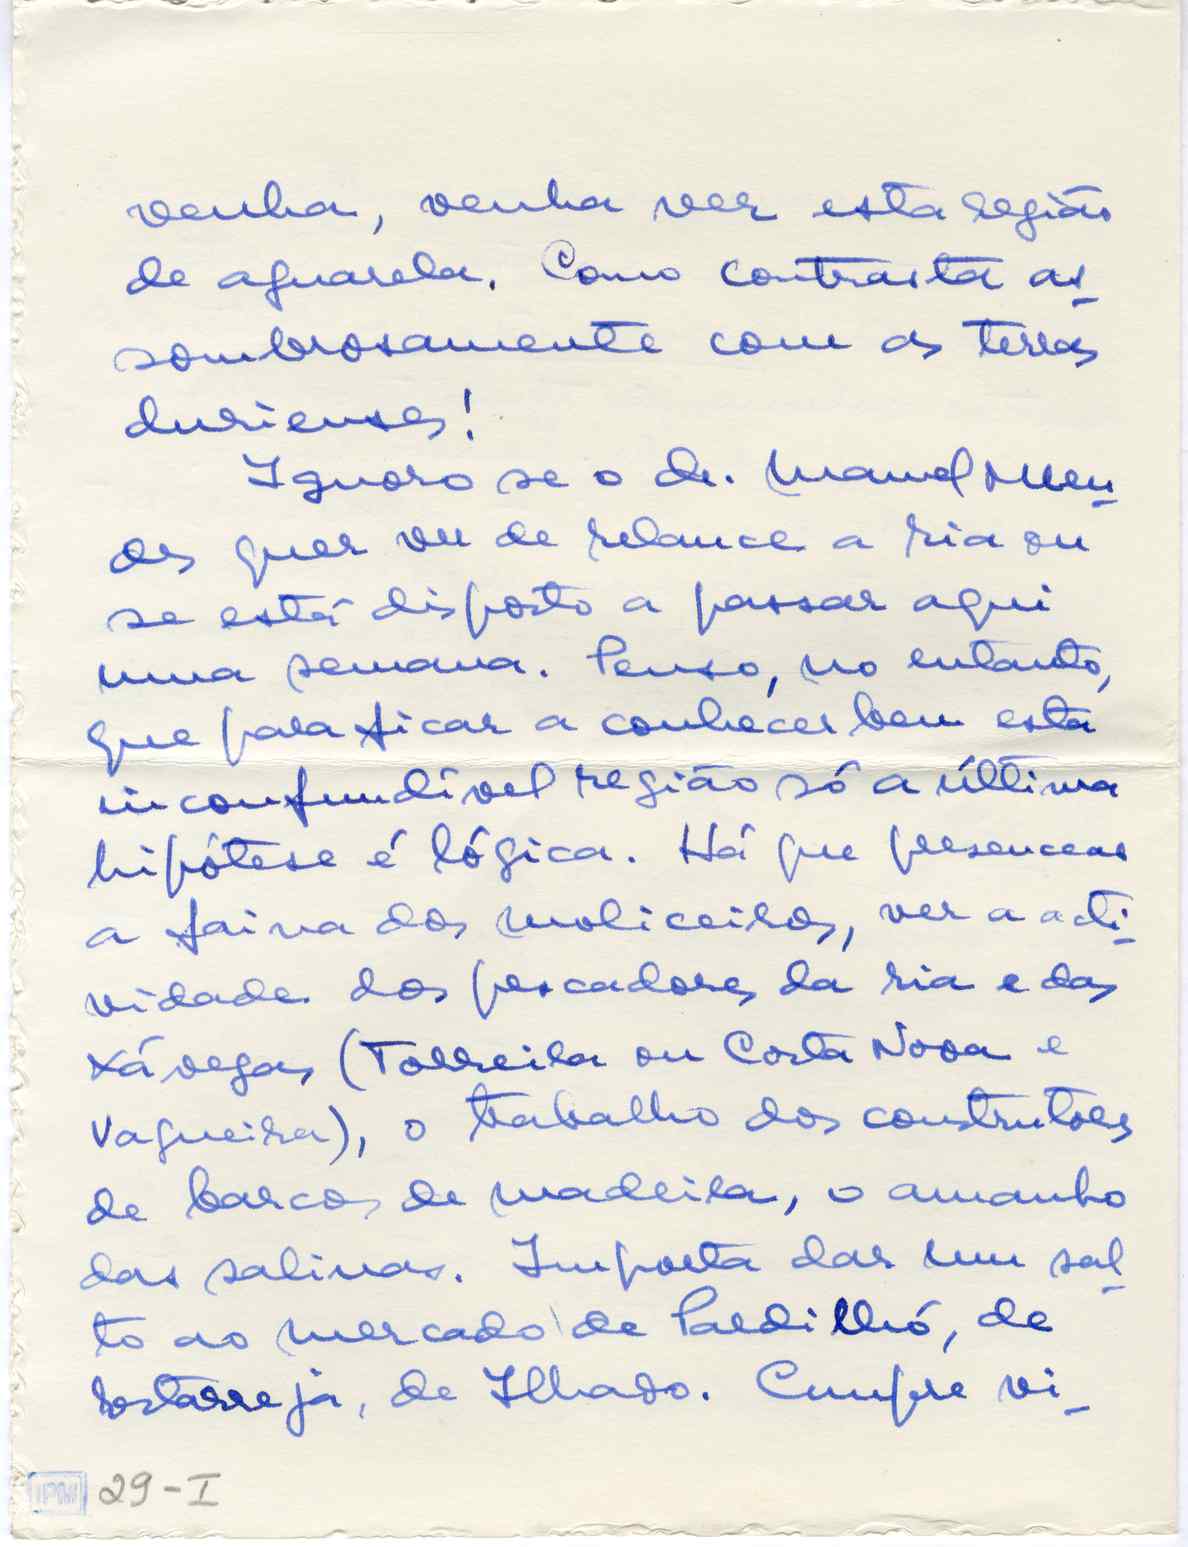 venha, venha ver esta região
de aguarela. Como contrasta as-
sombrosamente com as terras
durienses!
Ignoro se o dr. Manuel Men-
des quer ver de relance a ria ou
se está disposto a passar aqui
uma semana. Penso, no entanto,
que para ficar a conhecer bem esta
inconfundível região só a última
hipótese é lógica. Há que presencear
a faina dos moliceiros, ver a acti-
vidade dos pescadores da ria e das
xávegas (Torreira ou Costa Nova e
Vagueira), o trabalho dos construtores
de barcos de madeira, o amanho
das salinas. Importa dar um sal-
to ao mercado de Pardilhó, de
Estarreja, de Ilhavo. Cumpre vi-
29-I